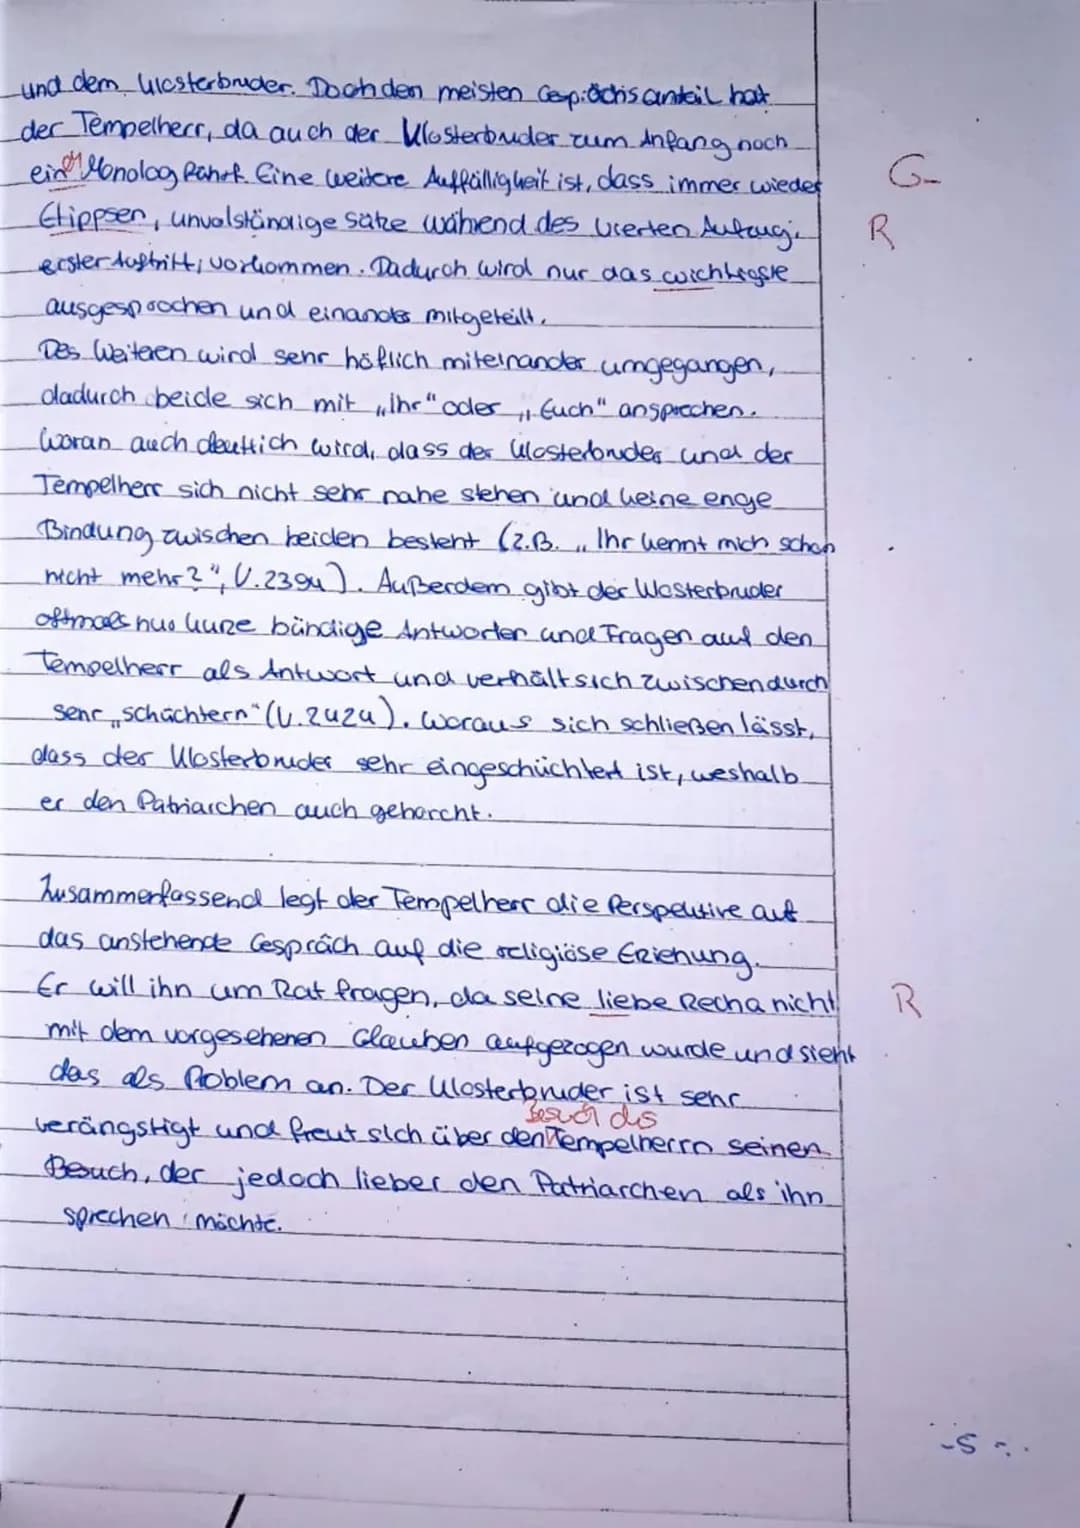 und dem Klosterbruder. Doch den meisten Gesprächsanteil hat
der Tempelherr, da auch der Klosterbruder zum Anfang noch
einen Monolog führt. Eine weitere Auffälligkeit ist, dass immer wieder
G-
Elippsen, unvolständige Sätze während des vierten Aufzug,
R
erster Auftritt, vorkommen. Dadurch wird nur das wichtiegste
ausgesprochen und einander mitgeteilt.
Des Weiteren wird sehr höflich miteinander umgegangen,
dadurch beide sich mit „Ihr" oder „Euch" ansprechen.
Woran auch deutlich wird, dass der Klosterbruder und der
Tempelherr sich nicht sehr nahe stehen und keine enge
Bindung zwischen beiden besteht (z.B. „Ihr kennt mich schon
nicht mehr?", V.2394). Außerdem gibt der Klosterbruder
oftmals nur kurze bündige Antworten und Fragen auf den
Tempelherr als Antwort und verhält sich zwischendurch
sehr „schüchtern" (V.2424). Woraus sich schließen lässt,
dass der Klosterbruder sehr eingeschüchtert ist, weshalb
er den Patriarchen auch gehorcht.
Zusammenfassend legt der Tempelherr die Perspektive auf
das anstehende Gespräch auf die religiöse Erziehung.
Er will ihn um Rat fragen, da seine liebe Recha nicht
R
mit dem vorgesehenen Glauben aufgezogen wurde und sieht
das als Problem an. Der Klosterbruder ist sehr
Besuch des
verängstigt und freut sich über den Tempelherrn seinen
Besuch, der jedoch lieber den Patriarchen als ihn
sprechen möchte.
-5-